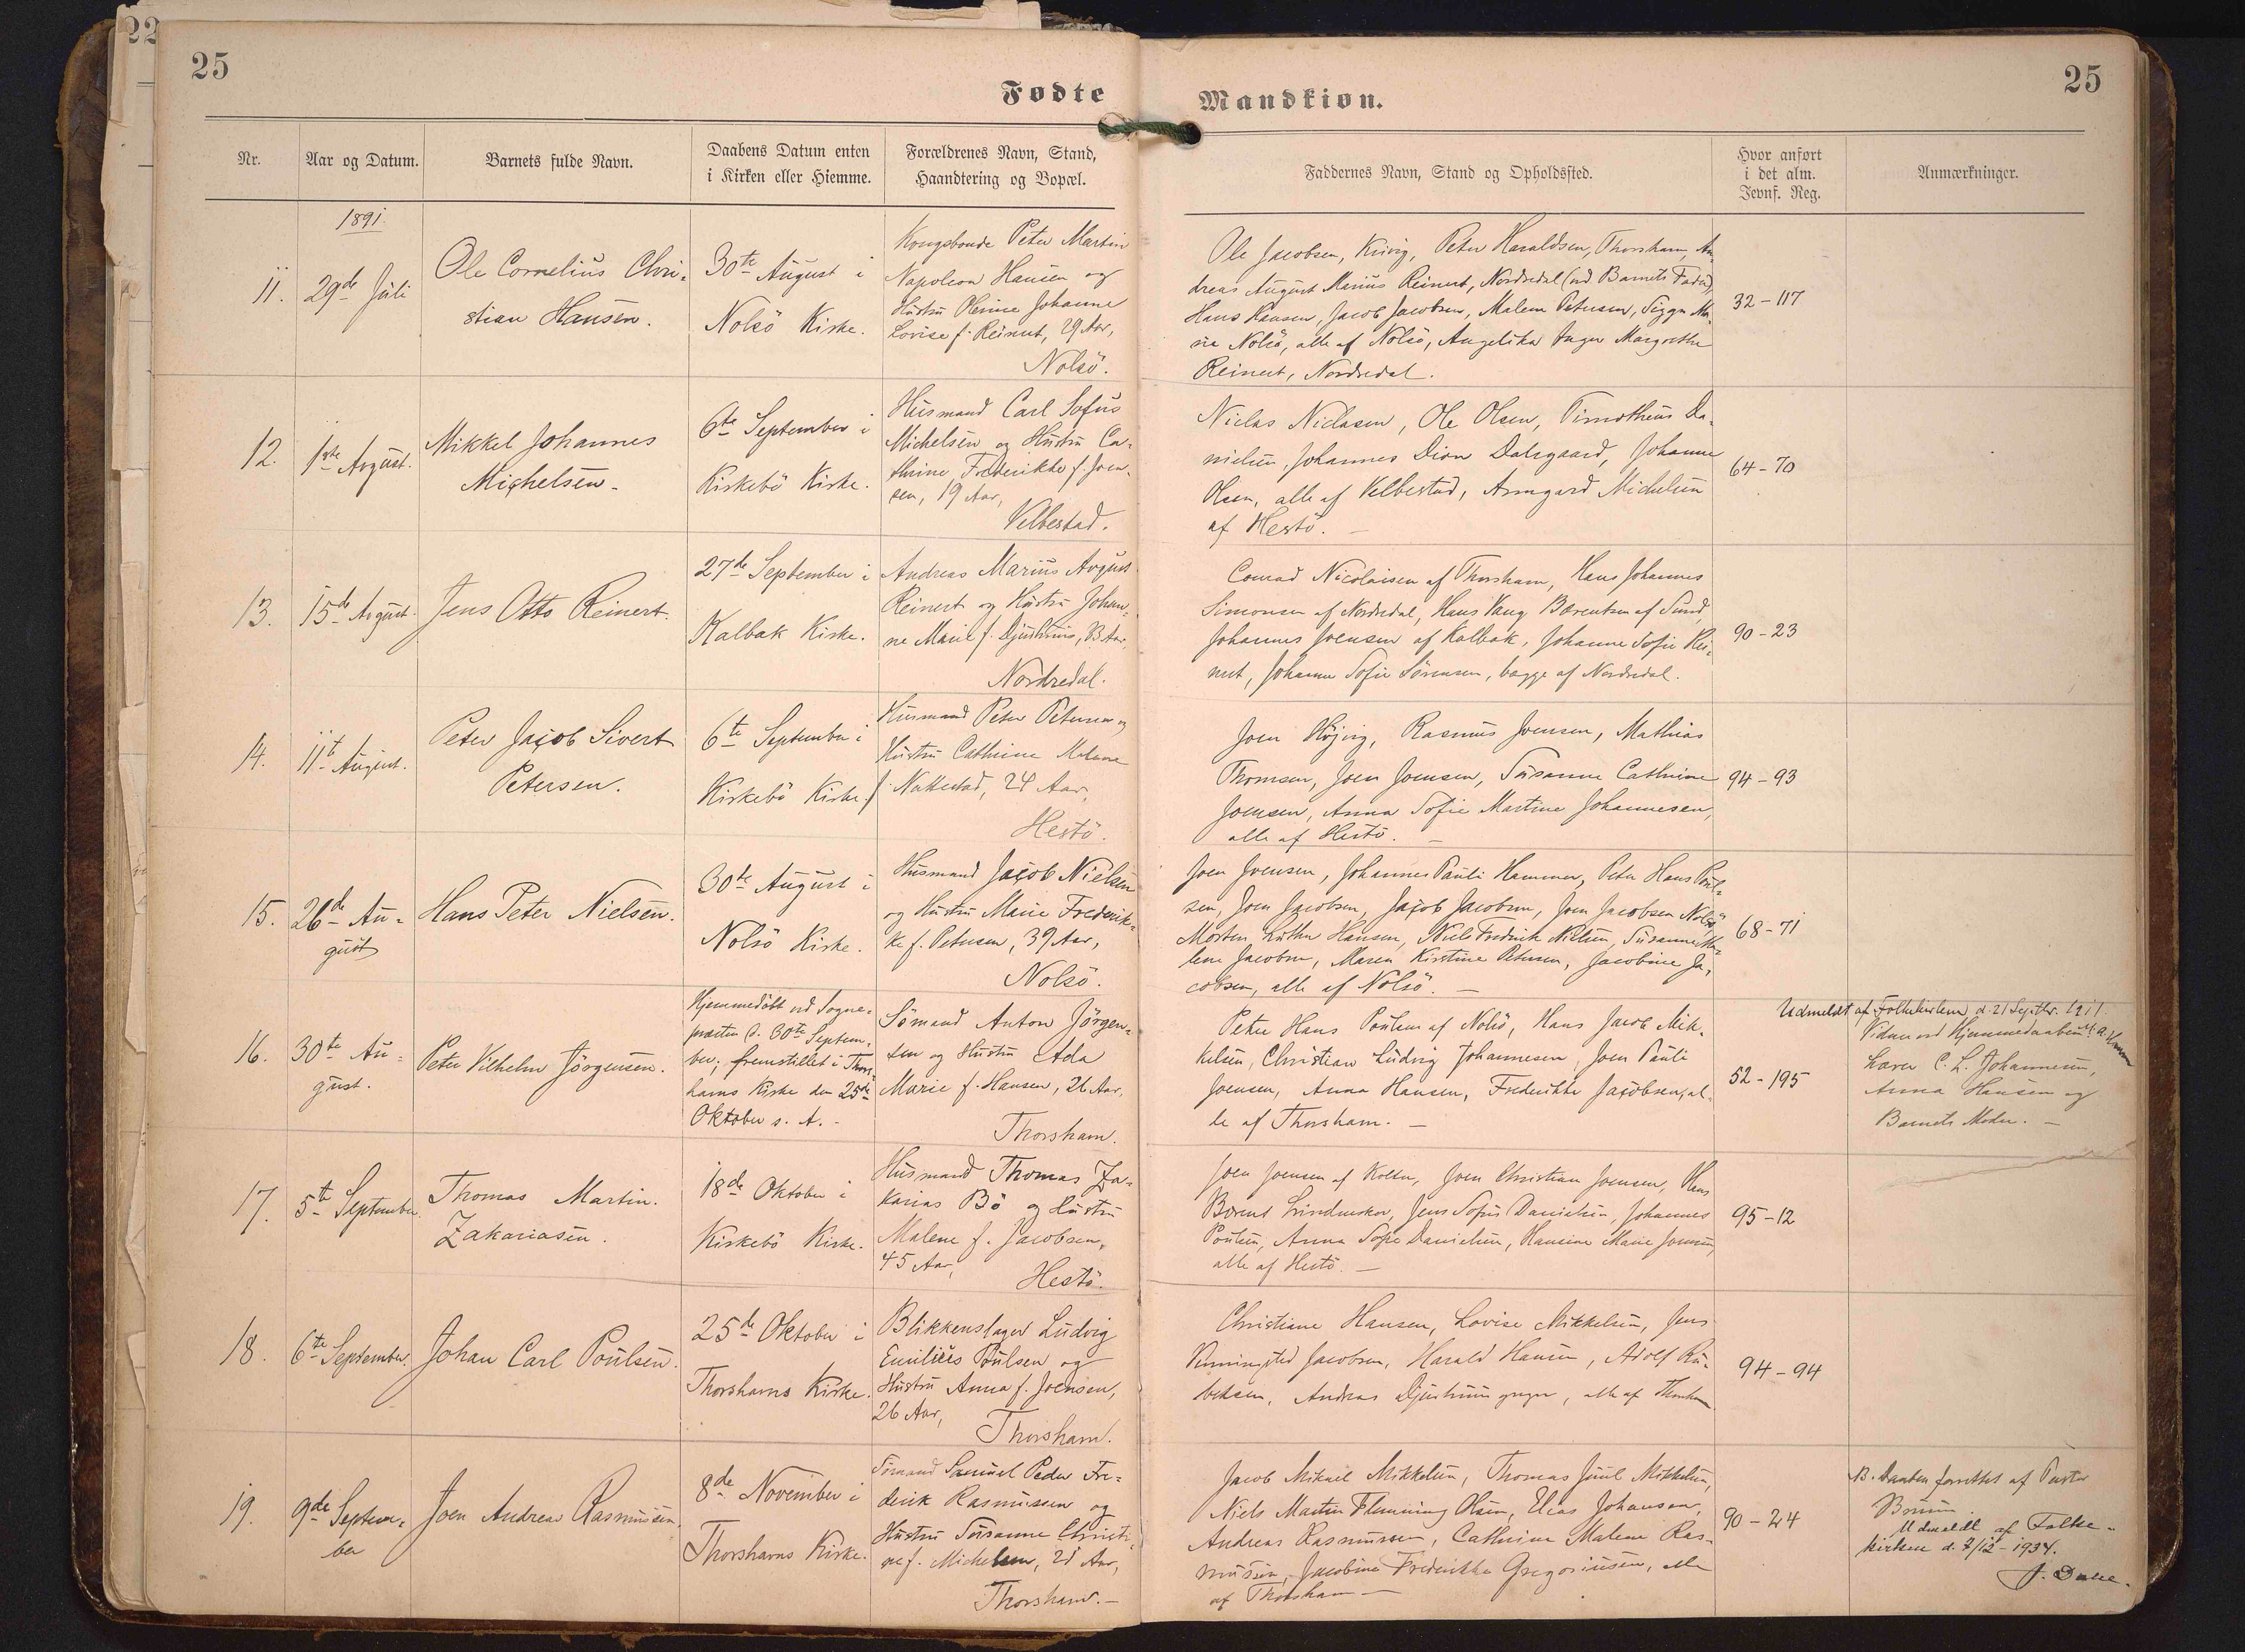 22
25
25
Fødte
Mandkiøn.
Nr.
Aar og Datum.
Barnets fulde Navn.
Daabens Datum enten
i Kirken eller Hiemme.
Forældrenes Navn, Stand,
Haandtering og Bopæl.
Faddernes Navn, Stand og Opholdssted.
Hvor anført
i det alm.
Jevnf. Reg.
Anmærkninger.
1891.
11.
29de Juli
Ole Cornelius Chri-
stian Hansen.
30te August i
Nolsö Kirke.
Kongsbonde Peter Martin
Napoleon Hansen og
Hustru Oline Johanne
Lovise f. Reinert, 29 Aar,
Nolsö.
Ole Jacobsen, Peter Haraldsen, Thorshavn, An-
dreas August Marius Reinert, Nordredal (ved Barnets Fader),
Hans Hansen, Jacob Jacobsen, Malene Petersen, Siggn Ma-
ria Nolsö, alle af Nolsö, Angelika Inger Margrethe
Reinert, Nordredal.
32-117
12.
1ste August.
Mikkel Johannes
Michelsen
6te September i
Kirkebö Kirke.
Husmand Carl Sofus
Michelsen og Hustru Ca-
thrine Frederikke f. Joen-
sen, 19 Aar,
Velbestad.
Niclas Niclasen, Ole Olsen, Timotheus Da-
nielsen, Johannes Dion Dalsgaard, Johanne
Olsen, alle af Velbestad, Armgard Michelsen
af Hestö.
64-70
13.
15de August.
Jens Otto Reinert.
27de September i
Kalbak Kirke.
Andreas Marius August
Reinert og Hustru Johan-
ne Marie f. Djurhuus, 33 Aar,
Nordredal.
Conrad Nicolaisen af Thorshavn, Hans Johannes
Simonsen af Nordredal, Hans Vang Barentsen af Sund,
Johannes Joensen af Kalbak, Johanne Sofie Rei-
nert, Johanne Sofie Sörensen, begge af Nordredal.
90-23
14.
11te August.
Peter Jacob Sivert
Petersen.
6te September i
Kirkebö Kirke.
Husmand Peter Petersen og
Hustru Cathrine Malene
f. Nakkestad, 24 Aar,
Hestö.
Joen Höjvig, Rasmus Joensen, Mathias
Thomsen, Joen Joensen, Susanne Cathrine
Joensen, Anna Sofie Martine Johannesen,
alle af Hestö.
94-93
15.
26de Au-
gust
Hans Peter Nielsen.
30te August i
Nolsö Kirke.
Husmand Jacob Nielsen
og Hustru Marie Frederik-
ke f. Petersen, 39 Aar,
Nolsö.
Joen Joensen, Johannes Pauli Hammer, Peter Hans Poul-
sen, Joen Jacobsen, Jacob Jacobsen, Joen Jacobsen Nolsö,
Morten Luther Hansen, Niels Fredrik Nielsen, Susanne Ma-
lene Jacobsen, Maren Kirstine Petersen, Jacobine Ja-
cobsen, alle af Nolsö.
68-71
16.
30te Au-
gust.
Peter Vilhelm Jörgensen.
Hjemmedöbt ved Sogne-
præsten d. 30te Septem-
ber; fremstillet i Thors-
havns Kirke den 25de
Oktober s. A.
Sömand Anton Jörgen-
sen og Hustru Ada
Marie f. Hansen, 26 Aar,
Thorshavn.
Peter Hans Poulsen af Nolsö, Hans Jacob Mik-
kelsen, Christian Ludvig Johannesen, Joen Pauli
Joensen, Anna Hansen, Frederikke Jacobsen, al-
le af Thorshavn.
52-195
Udmeldt af Folkekirken d. 21 Septbr. 1911.
Vidner ved Hjemmedaaben:
Lærer C. L. Johannesen,
Anna Hansen og
Barnets Moder.
17.
5te September.
Thomas Martin
Zakariasen.
18de Oktober i
Kirkebö Kirke.
Husmand Thomas Za-
karias Bö og Hustru
Malene f. Jacobsen,
45 Aar,
Hestö.
Joen Joensen af Kolter, Joen Christian Joensen, Hans
Barent Lindenskov, Jens Sofus Danielsen, Johannes
Poulsen, Anna Sofie Danielsen, Hansine Marie Joensen,
alle af Hestö.
95-12
18.
6te September.
Johan Carl Poulsen.
25de Oktober i
Thorshavns Kirke.
Blikkenslager Ludvig
Emilius Poulsen og
Hustru Anna f. Joensen,
26 Aar,
Thorshavn.
Christiane Hansen, Lovise Mikkelsen, Jens
Jacobsen, Harald Hansen, Adolf Ru-
beksen, Andreas Djurhuus, alle af Thorshavn
94-94
19.
9de Septem-
ber
Joen Andreas Rasmussen
8de November i
Thorshavns Kirke.
Sömand Samuel Peder Fre-
derik Rasmussen og
Hustru Susanne Christi-
ne f. Michelsen, 21 Aar,
Thorshavn.
Jacob Mikael Mikkelsen, Thomas Juul Mikkelsen,
Niels Martin Flemming Olsen, Elias Johansen,
Andreas Rasmussen, Cathrine Malene Ras-
mussen, Jacobine Frederikke Gregoriussen, alle
af Thorshavn
90-24
B. Daaben forrettet af Pastor
Bruun
Udmeldt af Folke-
kirken d. 7/12-1934.
J. Dahl.